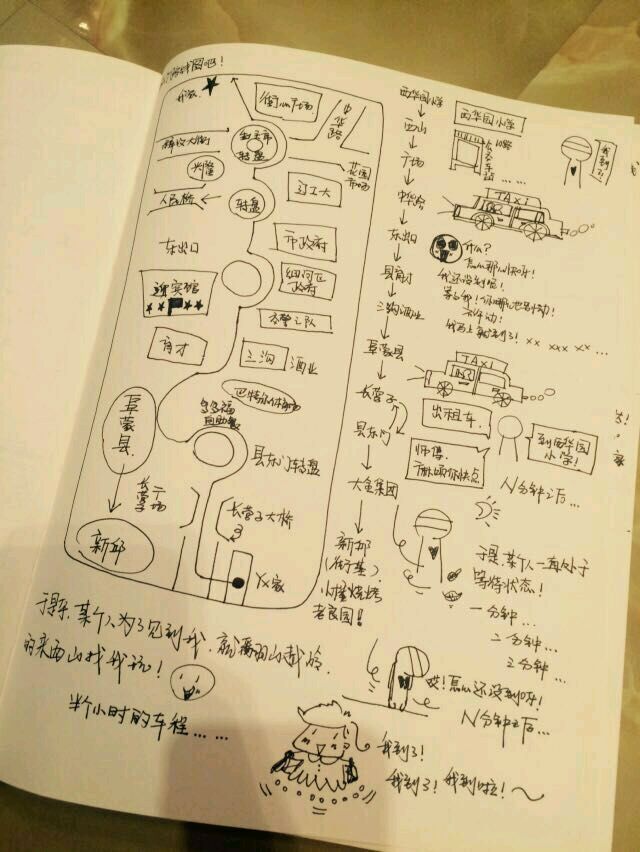 我家
街心广场
中华路
转盘
花园市场
兴隆
辽工大
人民桥
转盘
东出口
市政府
细河区政府
迎宾馆
交警支队
育才
三沟 酒业
巴特尔体育场
多多福自助餐
阜蒙县
县东门转盘
长营子广场
长营子大桥
新邱
YX家
于是,某个人为了见到我,就翻山越岭
的来西山找我玩!
半个小时的车程……
西华园小学
西山
广场
中华路
东出口
县育才
三沟酒业
阜蒙县
长营子
县东门
大金集团
新邱
老良园!
西华园小学
10路
公交车站
……
我到了!
TAXi
什么?
怎么那么快呀!
我还没到呢!
等我昂!你哪也别动!
不许动!
我马上就到了! xx xxx xx…
TAXi
出租车.
到西华园小学!
师傅,
麻烦你快点
N分钟之后…
于是,某个人一直处于
等待状态!
一分钟…
二分钟…
三分钟…
哎!怎么还没到呀!
N分钟之后…
我到了!
我到了!我到啦!~